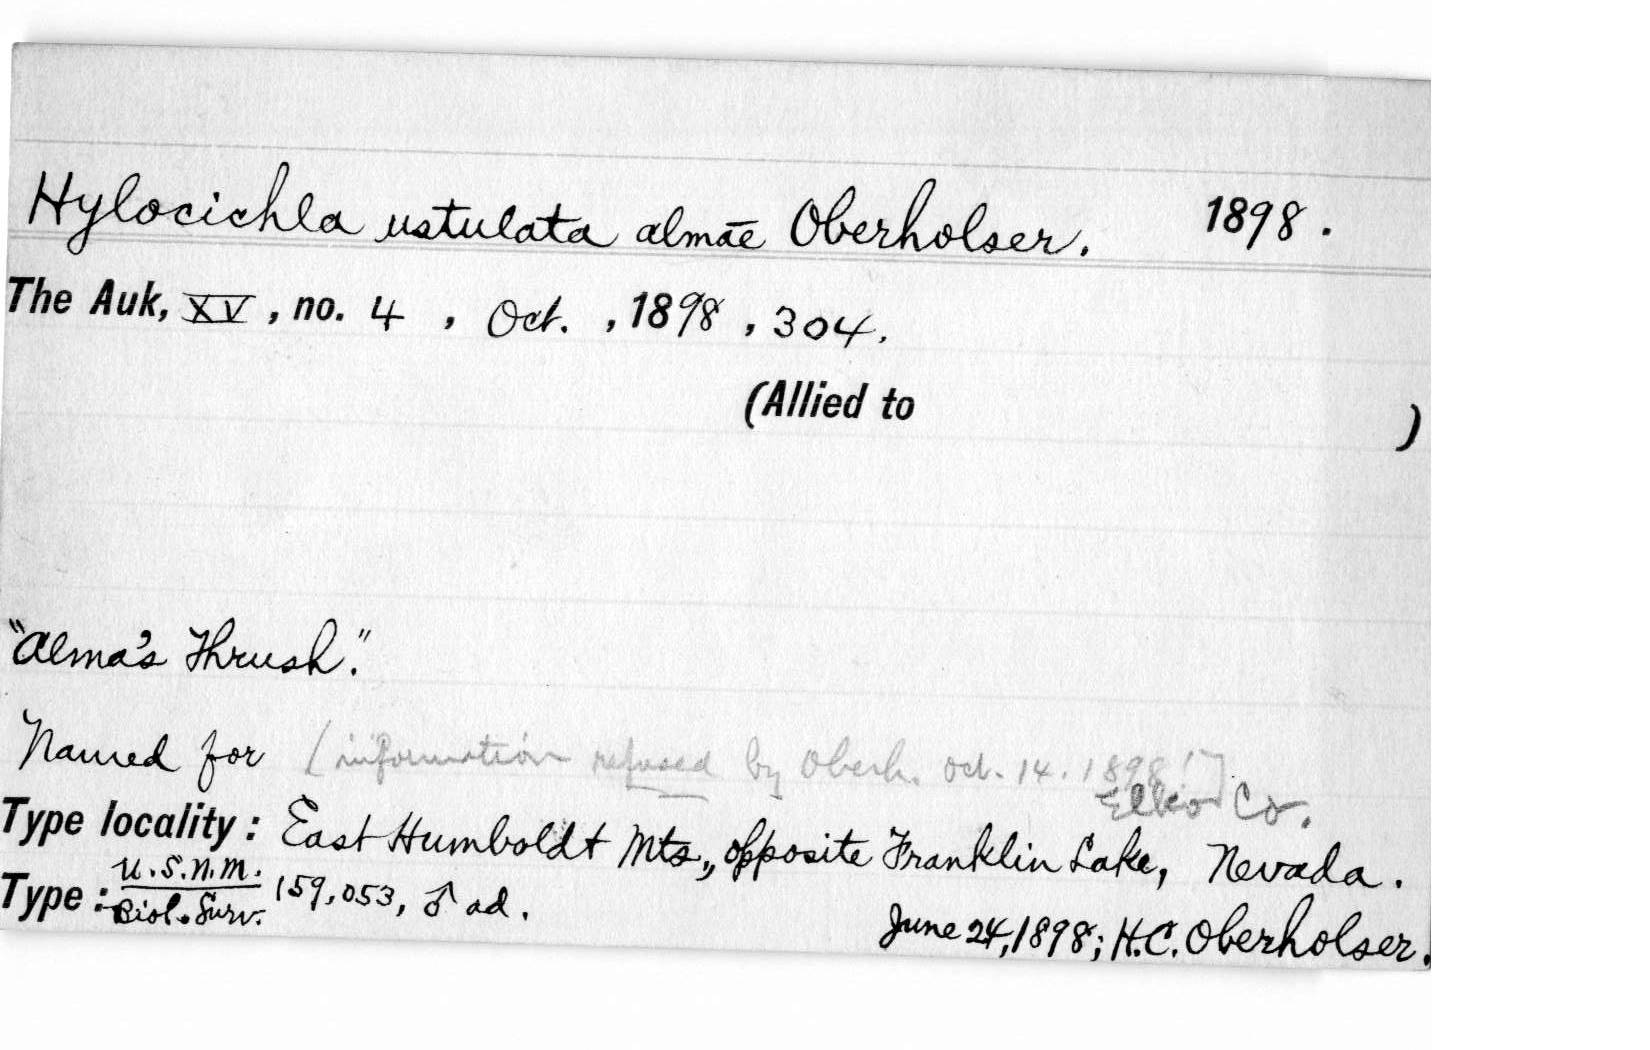 Hylocichla ustulata almae Oberholser. 1898.
The Auk, XV, no. 4, Oct., 1898, 304.
(Allied to )
"Alma's Thrush."
Named for [information refused by Oberh. Oct. 14. 1898!]
Elko Co.
Type locality: East Humboldt Mts., opposite Franklin Lake, Nevada.
Type: U.S.N.M. Biol. Surv. 159,053, ♂ ad.
June 24, 1898; H.C. Oberholser.